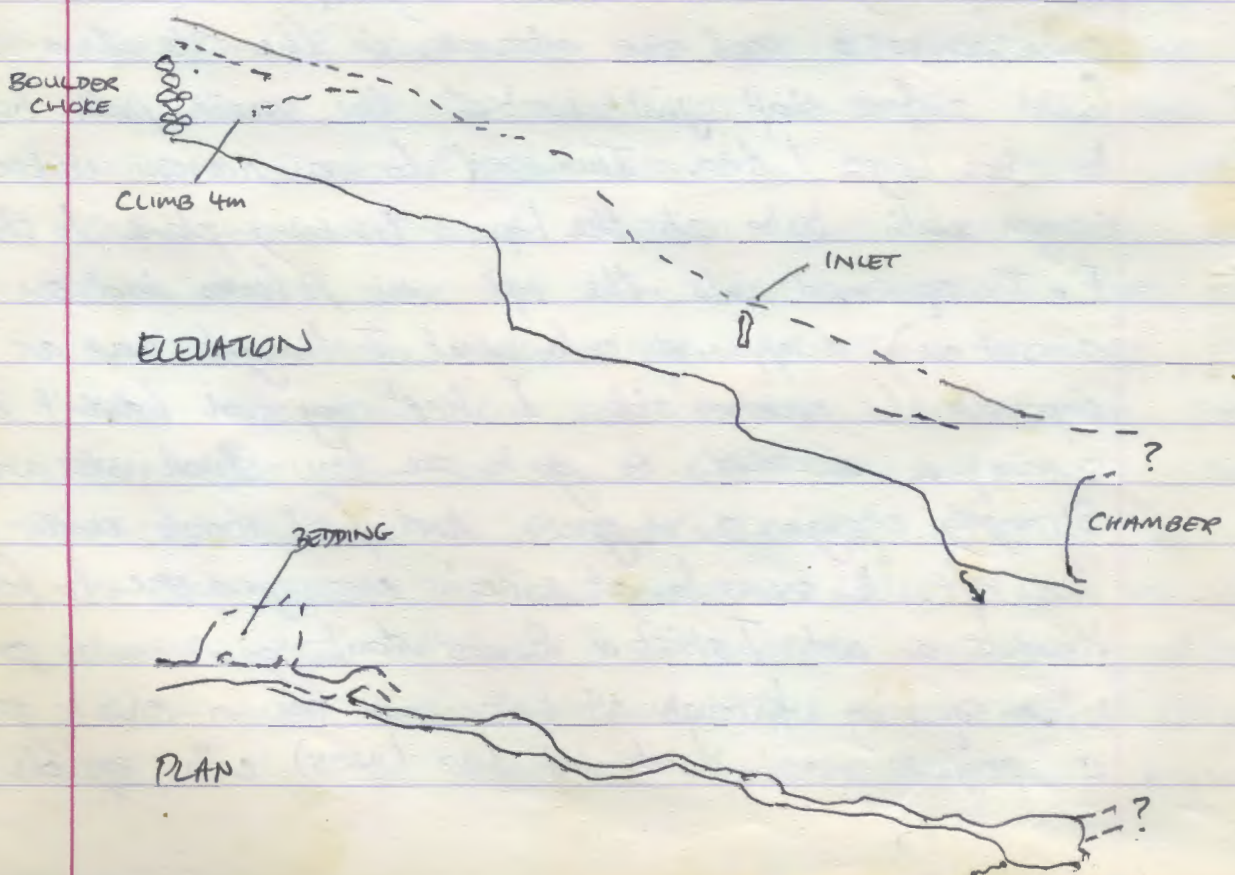 BOULDER
CHOKE
CLIMB 4m
INLET
ELEVATION
?
CHAMBER
BEDDING
PLAN
?